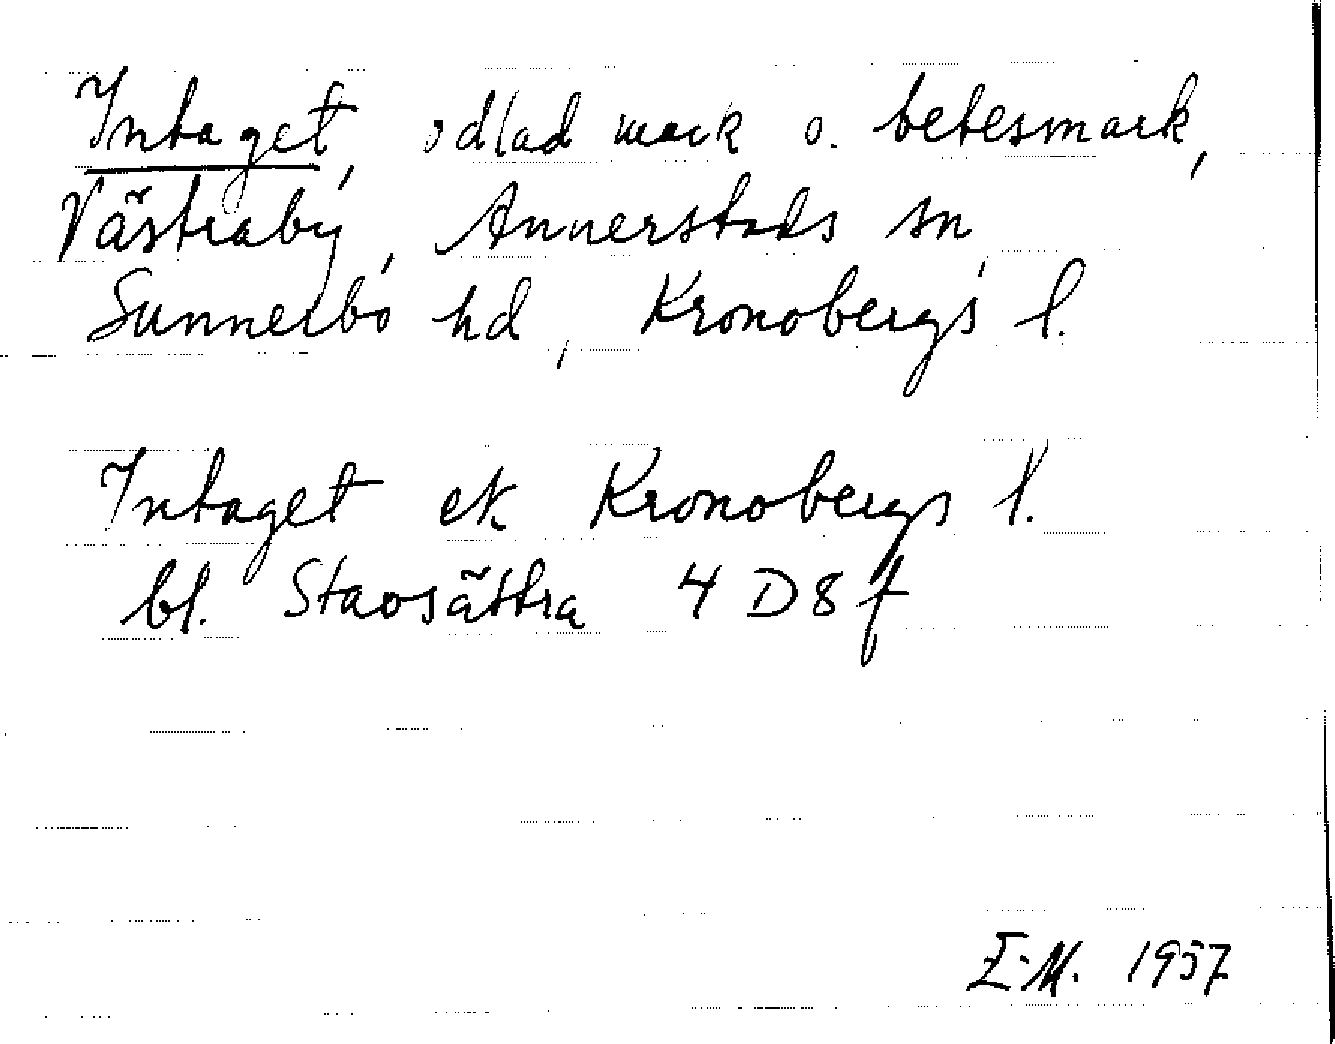 Intaget, odlad mark o. betesmark,
Västraby, Annerstads sn,
Sunnerbo hd, Kronobergs l.
Intaget ek Kronobergs l.
bl. Stavsättra 4 D 8 f
E.M. 1957